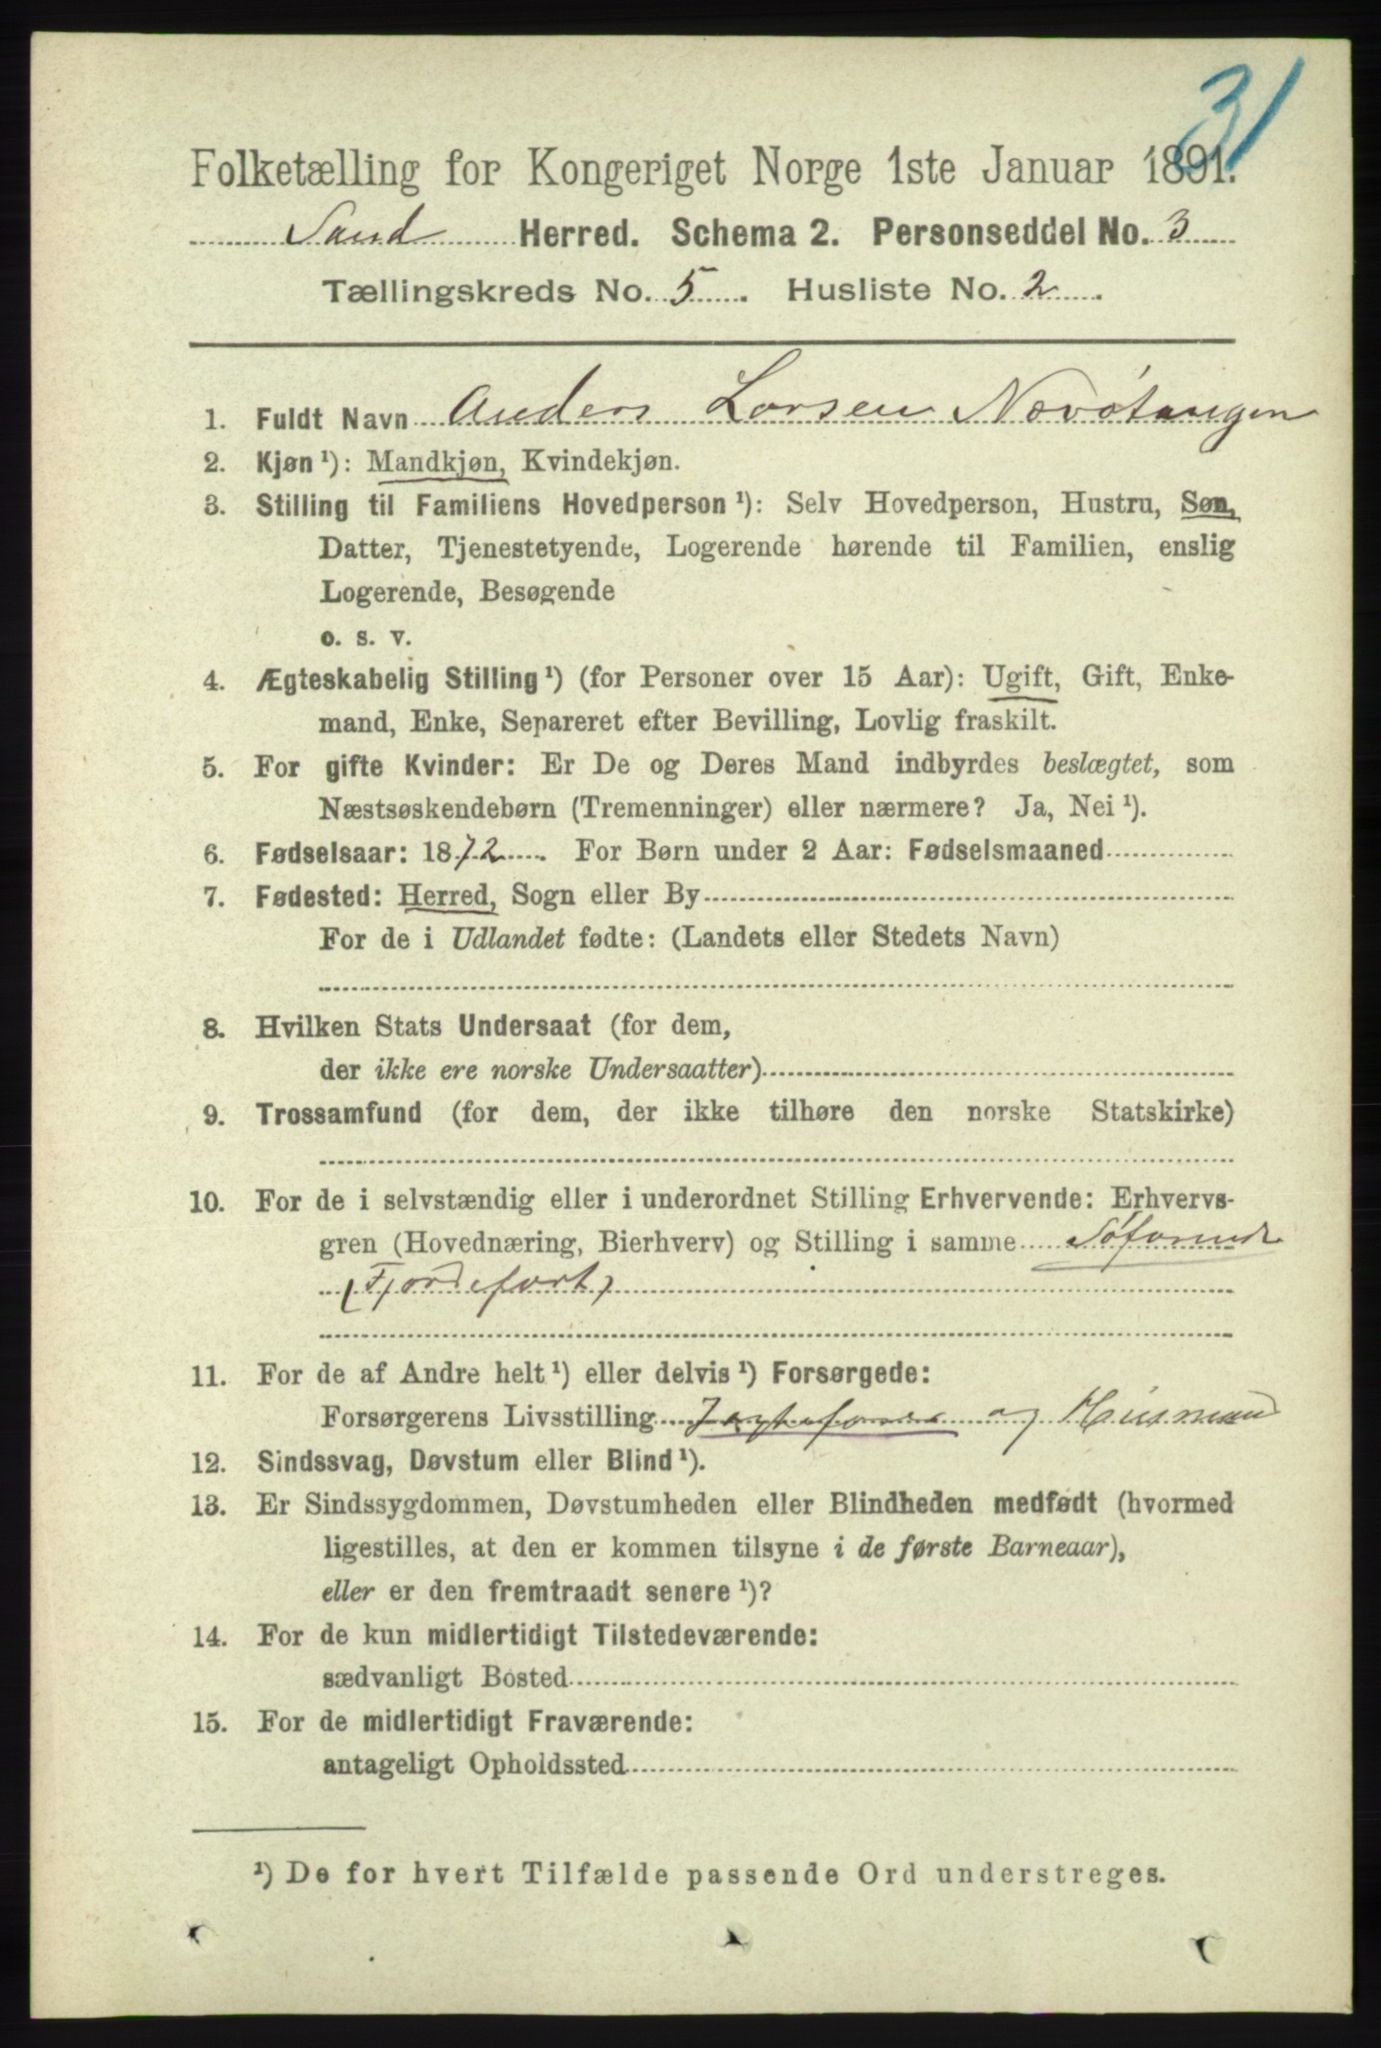 31
Folketælling for Kongeriget Norge 1ste Januar 1891.
Sand Herred. Schema 2. Personseddel No. 3
Tællingskreds No. 5. Husliste No. 2.
1. Fuldt Navn Anders Larsen Nævötangen
2. Kjøn ¹): Mandkjøn, Kvindekjøn.
3. Stilling til Familiens Hovedperson ¹): Selv Hovedperson, Hustru, Søn,
Datter, Tjenestetyende, Logerende hørende til Familien, enslig
Logerende, Besøgende
o. s. v.
4. Ægteskabelig Stilling ¹) (for Personer over 15 Aar): Ugift, Gift, Enke-
mand, Enke, Separeret efter Bevilling, Lovlig fraskilt.
5. For gifte Kvinder: Er De og Deres Mand indbyrdes beslægtet, som
Næstsøskendebørn (Tremenninger) eller nærmere? Ja, Nei ¹).
6. Fødselsaar: 1872. For Børn under 2 Aar: Fødselsmaaned
7. Fødested: Herred, Sogn eller By
For de i Udlandet fødte: (Landets eller Stedets Navn)
8. Hvilken Stats Undersaat (for dem,
der ikke ere norske Undersaatter)
9. Trossamfund (for dem, der ikke tilhøre den norske Statskirke)
10. For de i selvstændig eller i underordnet Stilling Erhvervende: Erhvervs-
gren (Hovednæring, Bierhverv) og Stilling i samme Söfarende
(Fjordefart)
11. For de af Andre helt ¹) eller delvis ¹) Forsørgede:
Forsørgerens Livsstilling og Husmand
12. Sindssvag, Døvstum eller Blind ¹).
13. Er Sindssygdommen, Døvstumheden eller Blindheden medfødt (hvormed
ligestilles, at den er kommen tilsyne i de første Barneaar),
eller er den fremtraadt senere ¹)?
14. For de kun midlertidigt Tilstedeværende:
sædvanligt Bosted
15. For de midlertidigt Fraværende:
antageligt Opholdssted
¹) De for hvert Tilfælde passende Ord understreges.